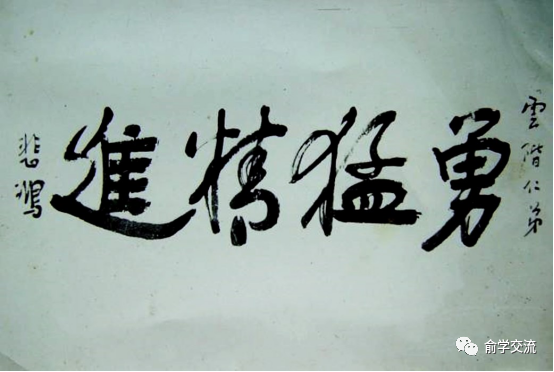 雲階仁弟
勇猛精進
悲鴻
俞学交流